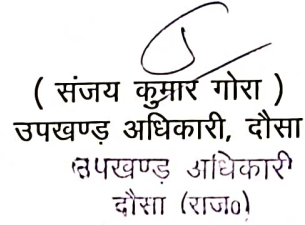 ( संजय कुमार गोरा )
उपखण्ड़ अधिकारी, दौसा
उपखण्ड अधिकारी
दौसा (राज०)